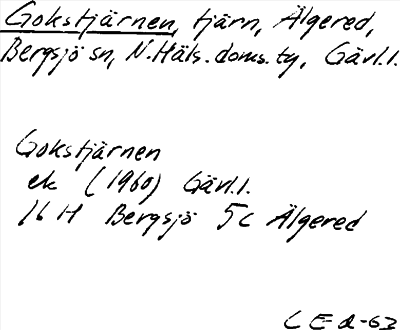 Gokstjärnen, tjärn, Älgered,
Bergsjö sn, N.Häls.doms.ty, Gävl.l.
Gokstjärnen
ek (1960) Gävl.l.
16 H Bergsjö 5c Älgered
CEd-63